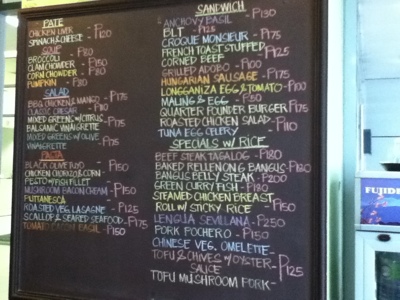 PATE
CHICKEN LIVER - ₱120
SPINACH & CHEESE
SOUP
BROCCOLI - ₱80
CLAM CHOWDER - ₱150
CORN CHOWDER - ₱80
PUMPKIN - ₱80
SALAD
BBQ CHICKEN & MANGO - ₱175
CLASSIC CAESAR - ₱110
MIXED GREENS W/ CITRUS - ₱75
BALSAMIC VINAIGRETTE
MIXED GREENS W/ OLIVE
VINAIGRETTE - ₱75
PASTA
BLACK OLIVE - ₱150
CHICKEN CHORIZO & CORN -
PESTO W/ FISH FILLET
MUSHROOM BACON CREAM - ₱150
PUTTANESCA
ROASTED VEG. LASAGNE - ₱125
SCALLOP & SEARED SEAFOOD - ₱175
TOMATO BACON BASIL - ₱150
SANDWICH
ANCHOVY BASIL - ₱130
BLT - ₱125
CROQUE MONSIEUR - ₱175
FRENCH TOAST STUFFED - ₱125
CORNED BEEF
GRILLED ADOBO - ₱100
HUNGARIAN SAUSAGE - ₱175
LONGGANIZA EGG & TOMATO - ₱100
MALING & EGG - ₱50
QUARTER POUNDER BURGER ₱175
ROASTED CHICKEN SALAD -
TUNA EGG CELERY - ₱110
SPECIALS W/ RICE
BEEF STEAK TAGALOG - ₱180
BAKED RELLENONG BANGUS - ₱180
BANGUS BELLY STEAK - ₱200
GREEN CURRY FISH - ₱180
STEAMED CHICKEN BREAST
ROLL W/ STICKY RICE - ₱150
LENGUA SEVILLANA - ₱250
PORK POCHERO - ₱150
CHINESE VEG. OMELETTE -
TOFU & CHIVES W/ OYSTER - ₱125
SAUCE
TOFU MUSHROOM PORK -
FUJIDE